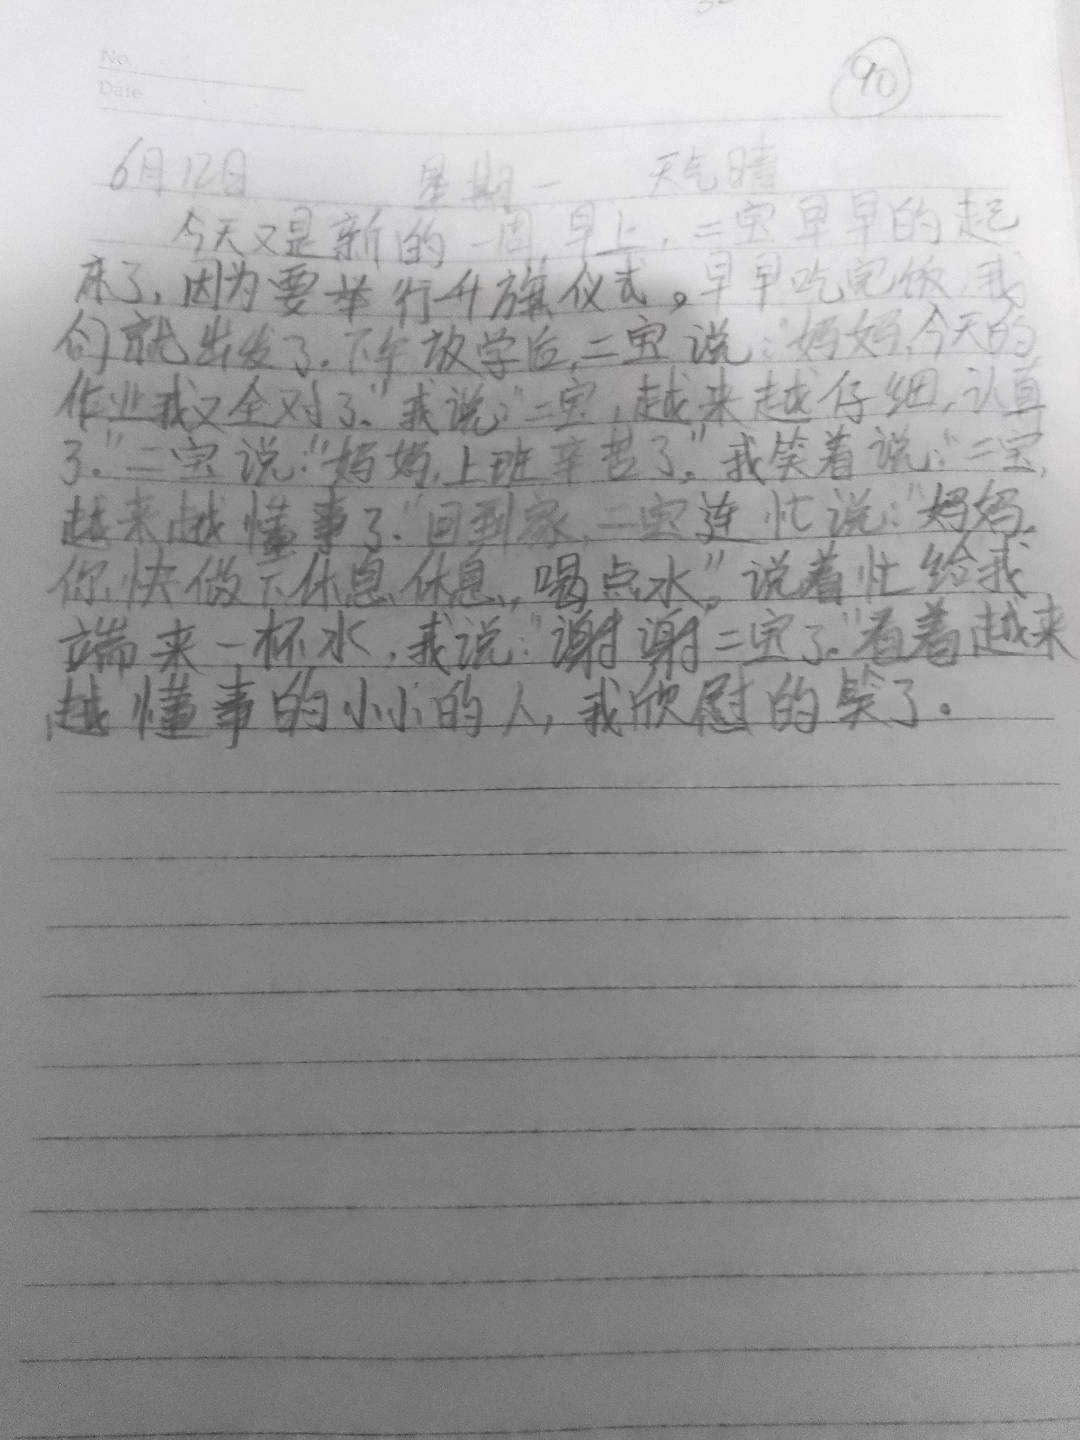 No.
Date
90
6月12日 星期一 天气晴
今天又是新的一周,早上,二宝早早的起
床了,因为要举行升旗仪式。早早吃完饭,我
们就出发了。下午放学后,二宝说:"妈妈,今天的
作业我又全对了。"我说:"二宝,越来越仔细,认真
了。"二宝说:"妈妈,上班辛苦了。"我笑着说:"二宝,
越来越懂事了。"回到家,二宝连忙说:"妈妈,
你快做下休息休息,喝点水"。说着忙给我
端来一杯水,我说:"谢谢二宝了。"看着越来
越懂事的小小的人,我欣慰的笑了。